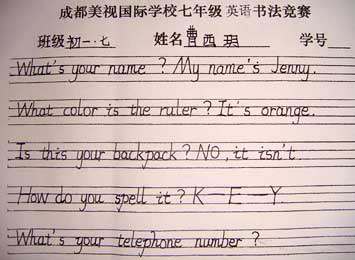 成都美视国际学校七年级英语书法竞赛
班级初一·七 姓名曹西玥 学号
What's your name? My name's Jenny.
What color is the ruler? It's orange.
Is this your backpack? NO, it isn't.
How do you spell it? K—E—Y.
What's your telephone number?